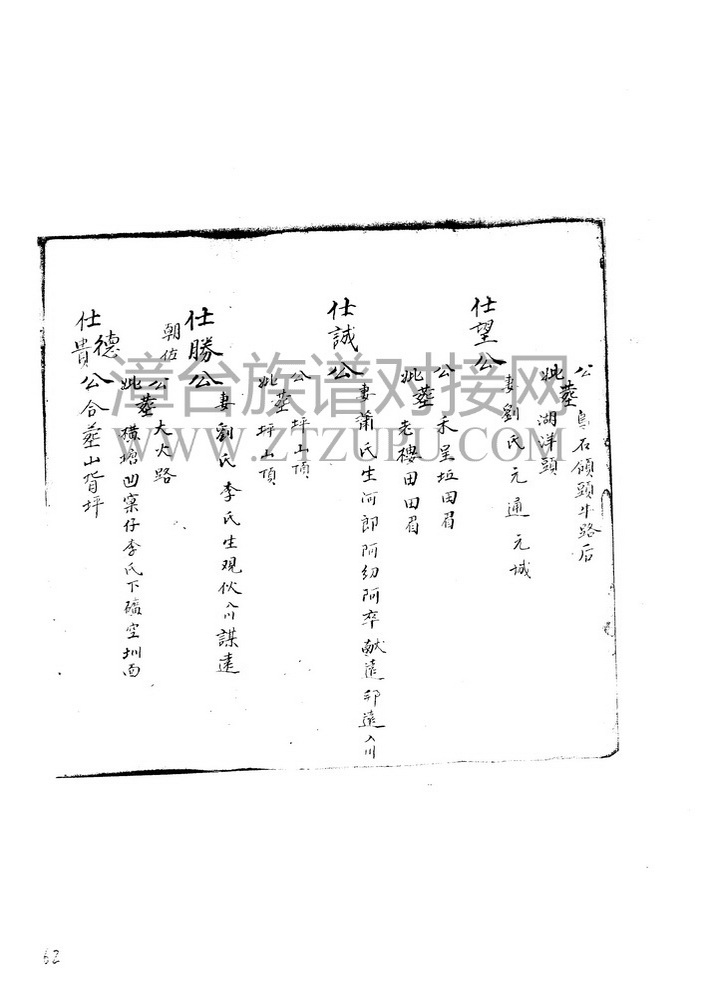 公葬烏石傾頭牛路后
妣葬湖洋頭
仕望公妻劉氏元通元城
公葬禾呈坵田眉
妣葬老樓田田眉
仕誠公妻蕭氏生阿郎阿幼阿卒献遠邦遠入川
公葬坪山頂
妣葬坪山頂
仕勝公妻劉氏李氏生观伙入川謀遠
朝佐
公葬大火路
妣葬橫塘凹窠仔李氏下礦空圳面
德
仕貴公合葬山背坪
漳台族谱对接网
WWW.ZTZUPU.COM
62